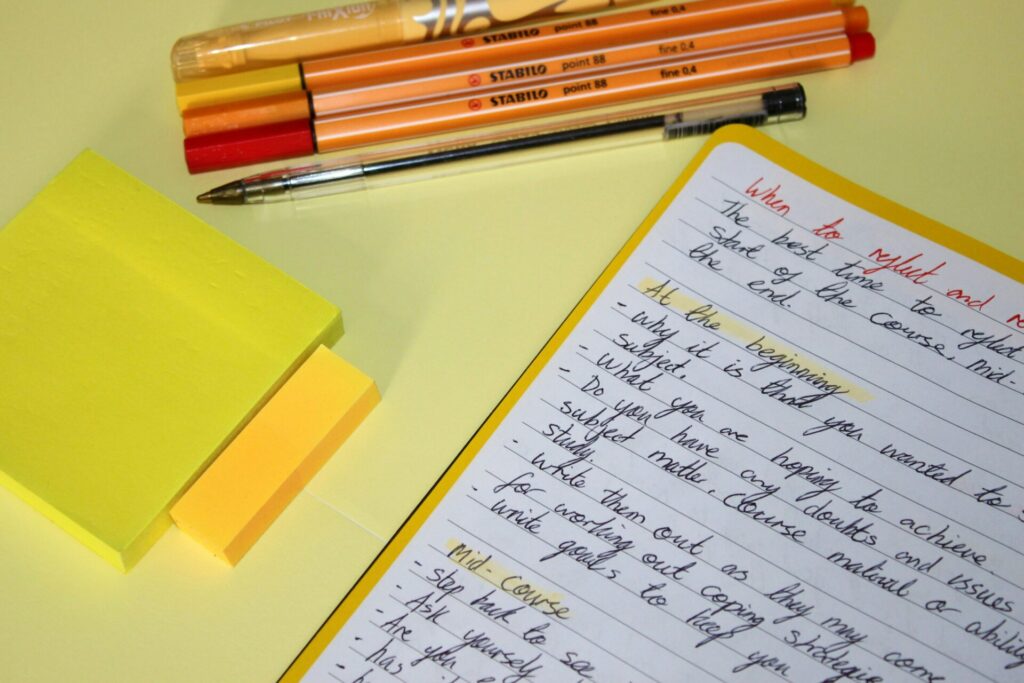 STABILO fine 0,4
STABILO point 88 fine 0,4
STABILO point 88 fine 0,4
When to reflect and
The best time to reflect
start of the course, mid-
the end.
At the beginning
- why it is that you wanted to
subject.
- what you are hoping to achieve
- Do you have any doubts and issues
subject matter, course material or ability
study.
- write them out as they may come
for working out coping strategies
- write goals to keep you
Mid-Course
- step back to see
- Ask yourself
- Are you
- has